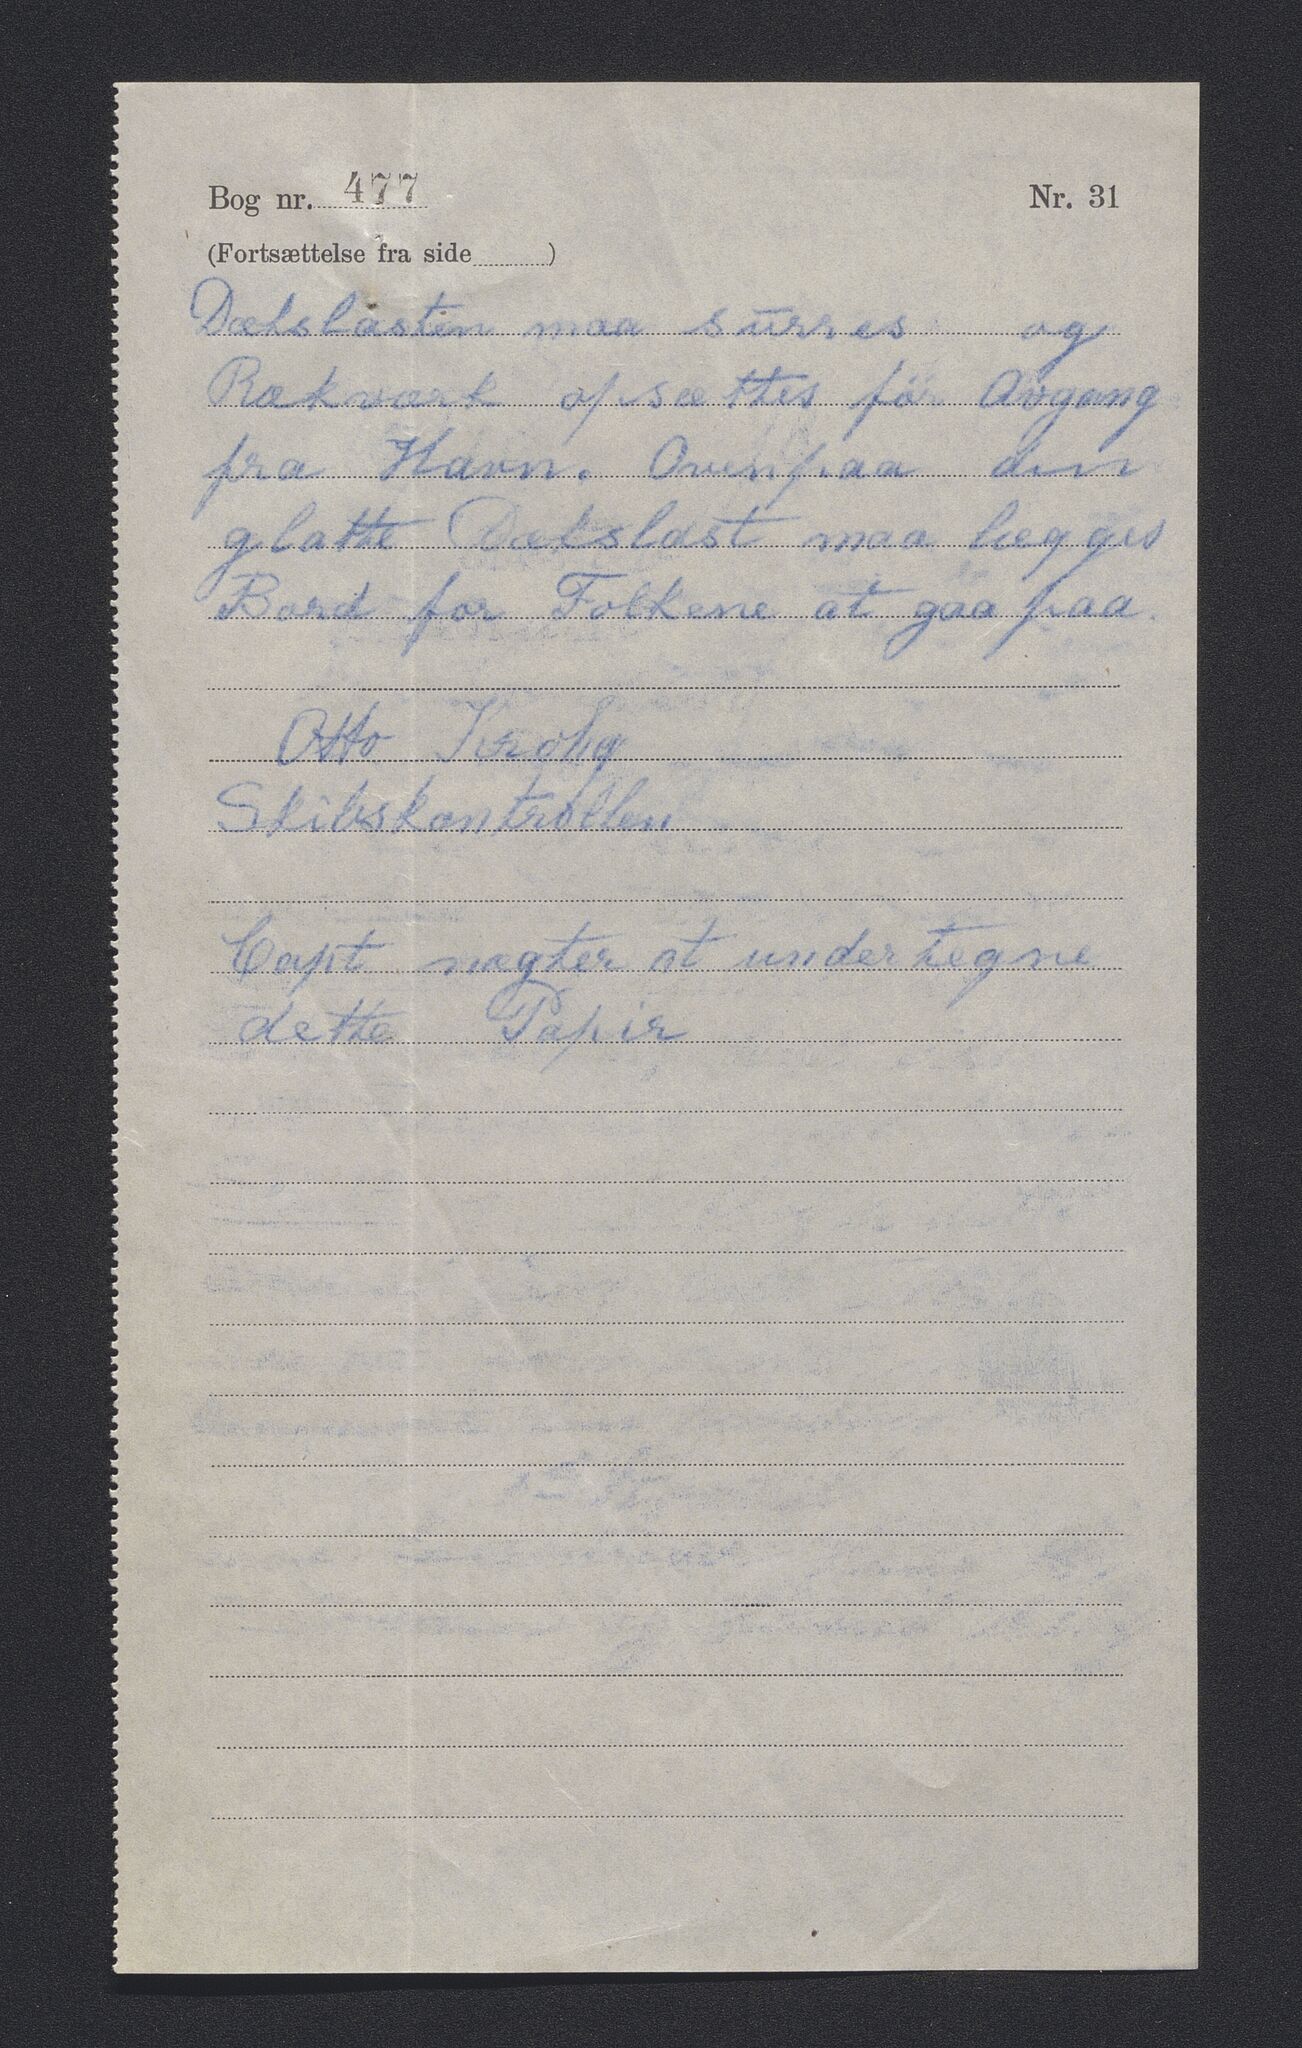 Bog nr. 477
Nr. 31
(Fortsættelse fra side )
Dækslasten maa surres og
Rækværk opsættes før Avgang
fra Havn. Ovenpaa den
glatte Dækslast maa lægges
Bord for Folkene at gaa paa.
Otto Krohg
Skibskontrollen
Capt nægter at undertegne
dette Papir